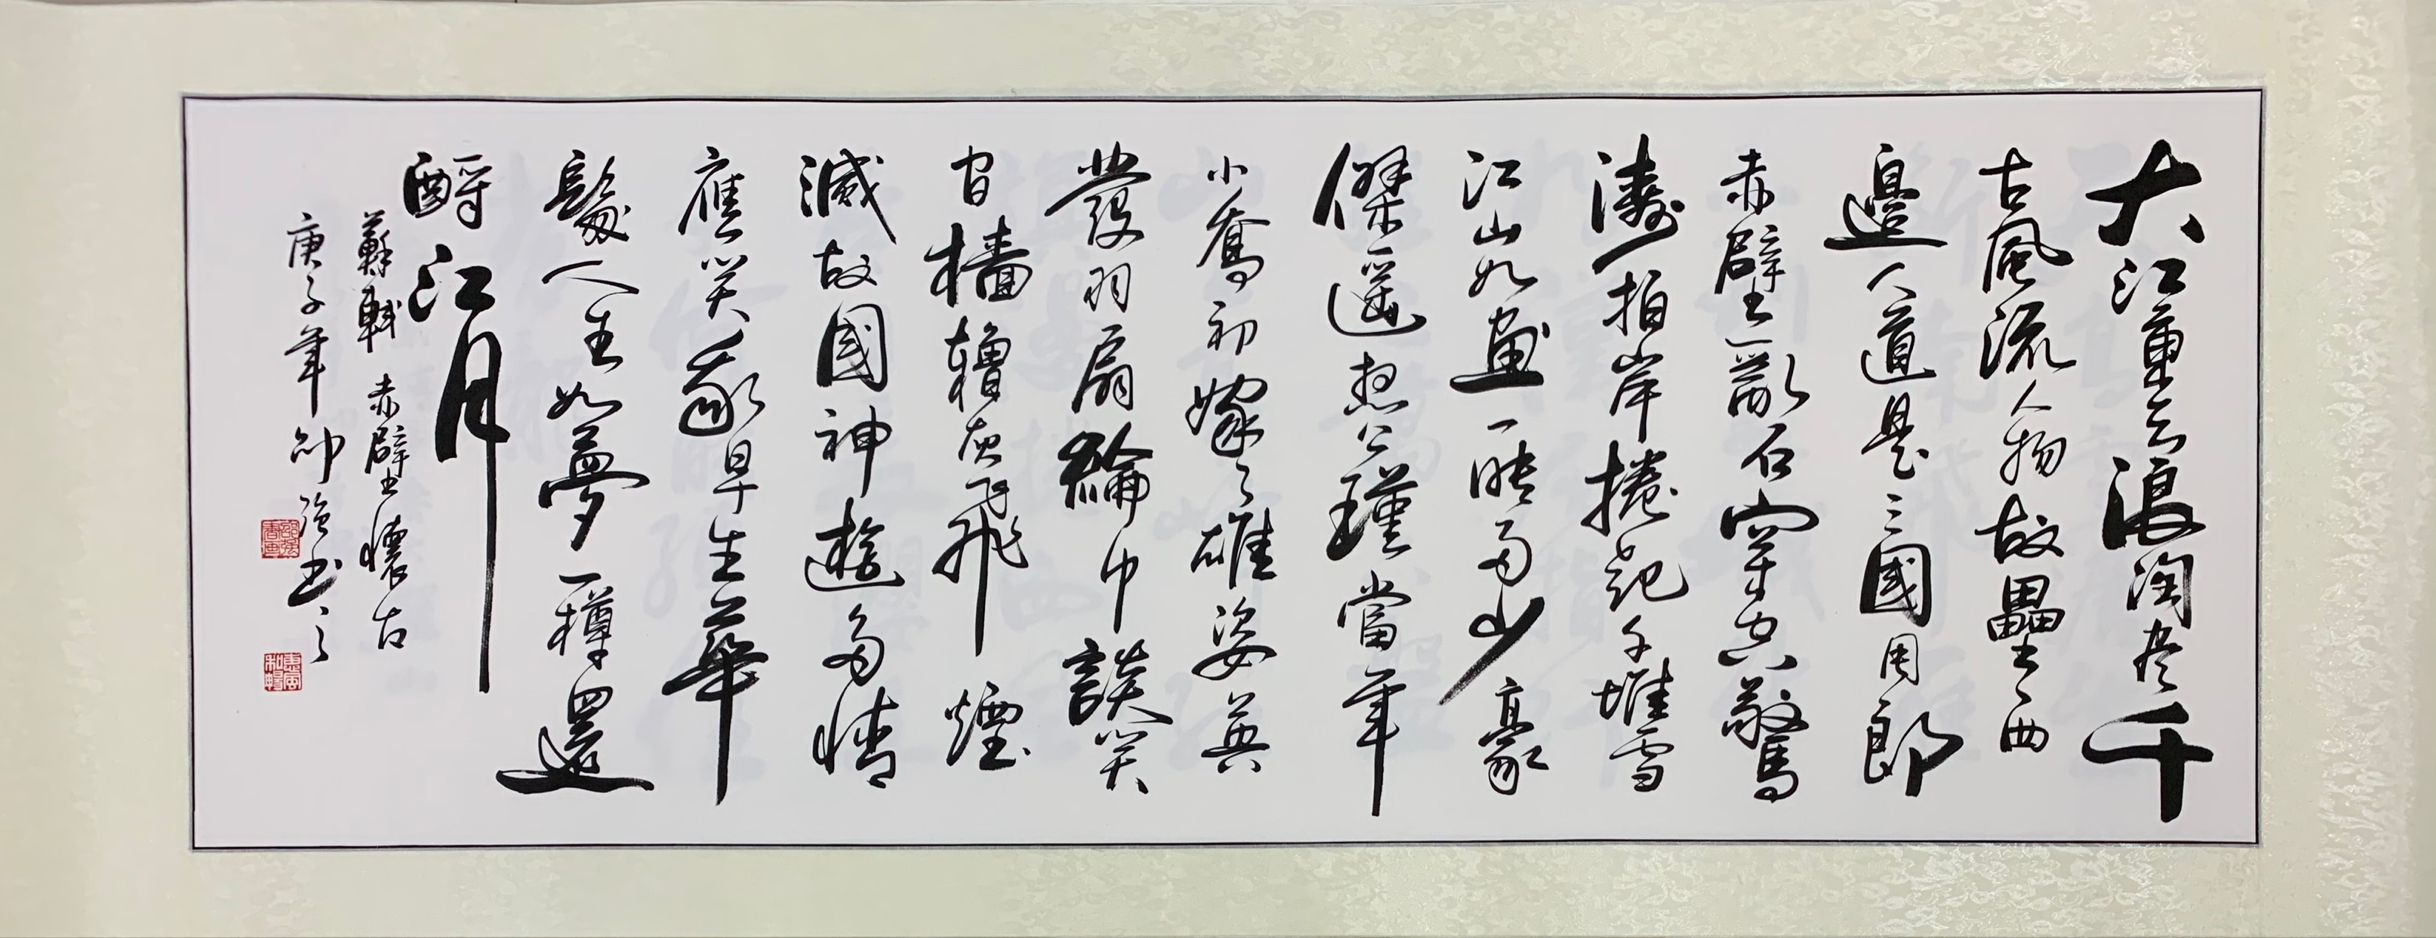 大江東去浪淘尽千
古風流人物故壘西
邊人道是三國周郎
赤壁亂石穿空驚
濤拍岸捲起千堆雪
江山如畫一時多少豪
傑遥想公瑾當年
小喬初嫁了雄姿英
發羽扇綸巾談笑
間檣櫓灰飛煙
滅故國神遊多情
應笑我早生華
髮人生如夢一樽還
酹江月
蘇軾 赤壁懷古
庚子年邵强书之
惠風和暢